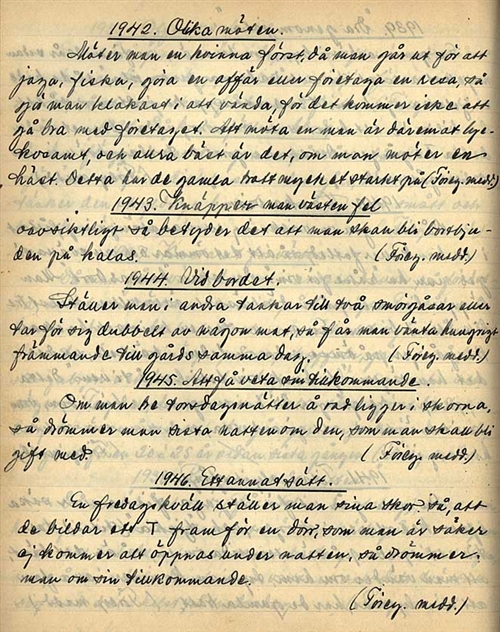 1942. Olika möten.
Möter man en kvinna först, då man går ut för att
jaga, fiska, göra en affär eller företaga en resa, så
gör man klokast i att vända, för det kommer icke att
gå bra med företaget. Att möta en man är däremot lyc-
kosamt, och allra bäst är det, om man möter en
häst. Detta har de gamla trott mycket starkt på (Föreg. medd.)
1943. Knäpper man västen fel
oavsiktligt så betyder det att man skall bli bortbju-
den på kalas. (Föreg. medd.)
1944. Vid bordet.
Ställer man i andra tankar till två smörgåsar eller
tar för sig dubbelt av någon mat, så får man vänta hungrigt
främmande till gårds samma dag. (Föreg. medd.)
1945. Att få veta sin tillkommande.
Om man tre torsdagsnätter å rad ligger i skorna,
så drömmer man sista natten om den, som man skall bli
gift med. (Föreg. medd.)
1946. Ett annat sätt.
En fredagskväll ställer man sina skor så, att
de bildar ett T fram för en dörr, som man är säker
ej kommer att öppnas under natten, så drömmer
man om sin tillkommande.
(Föreg. medd.)